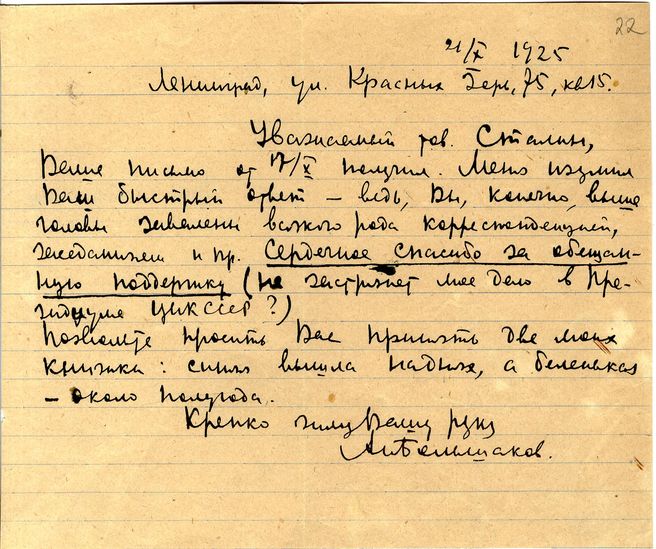 22
21/X 1925
Ленинград, ул. Красных Зорь, 75, кв 15.
Уважаемый тов. Сталин,
Ваше письмо от 17/X получил. Меня изумил
Ваш быстрый ответ – ведь, Вы, конечно, выше
головы завалены всякого рода корреспонденцией,
заседаниями и пр. Сердечное спасибо за обещан-
ную поддержку (не застрянет мое дело в Пре-
зидиуме ЦИК СССР?)
Позвольте просить Вас принять две моих
книжки: синяя вышла на днях, а беленькая
– около полугода.
Крепко жму Вашу руку
А. Большаков.